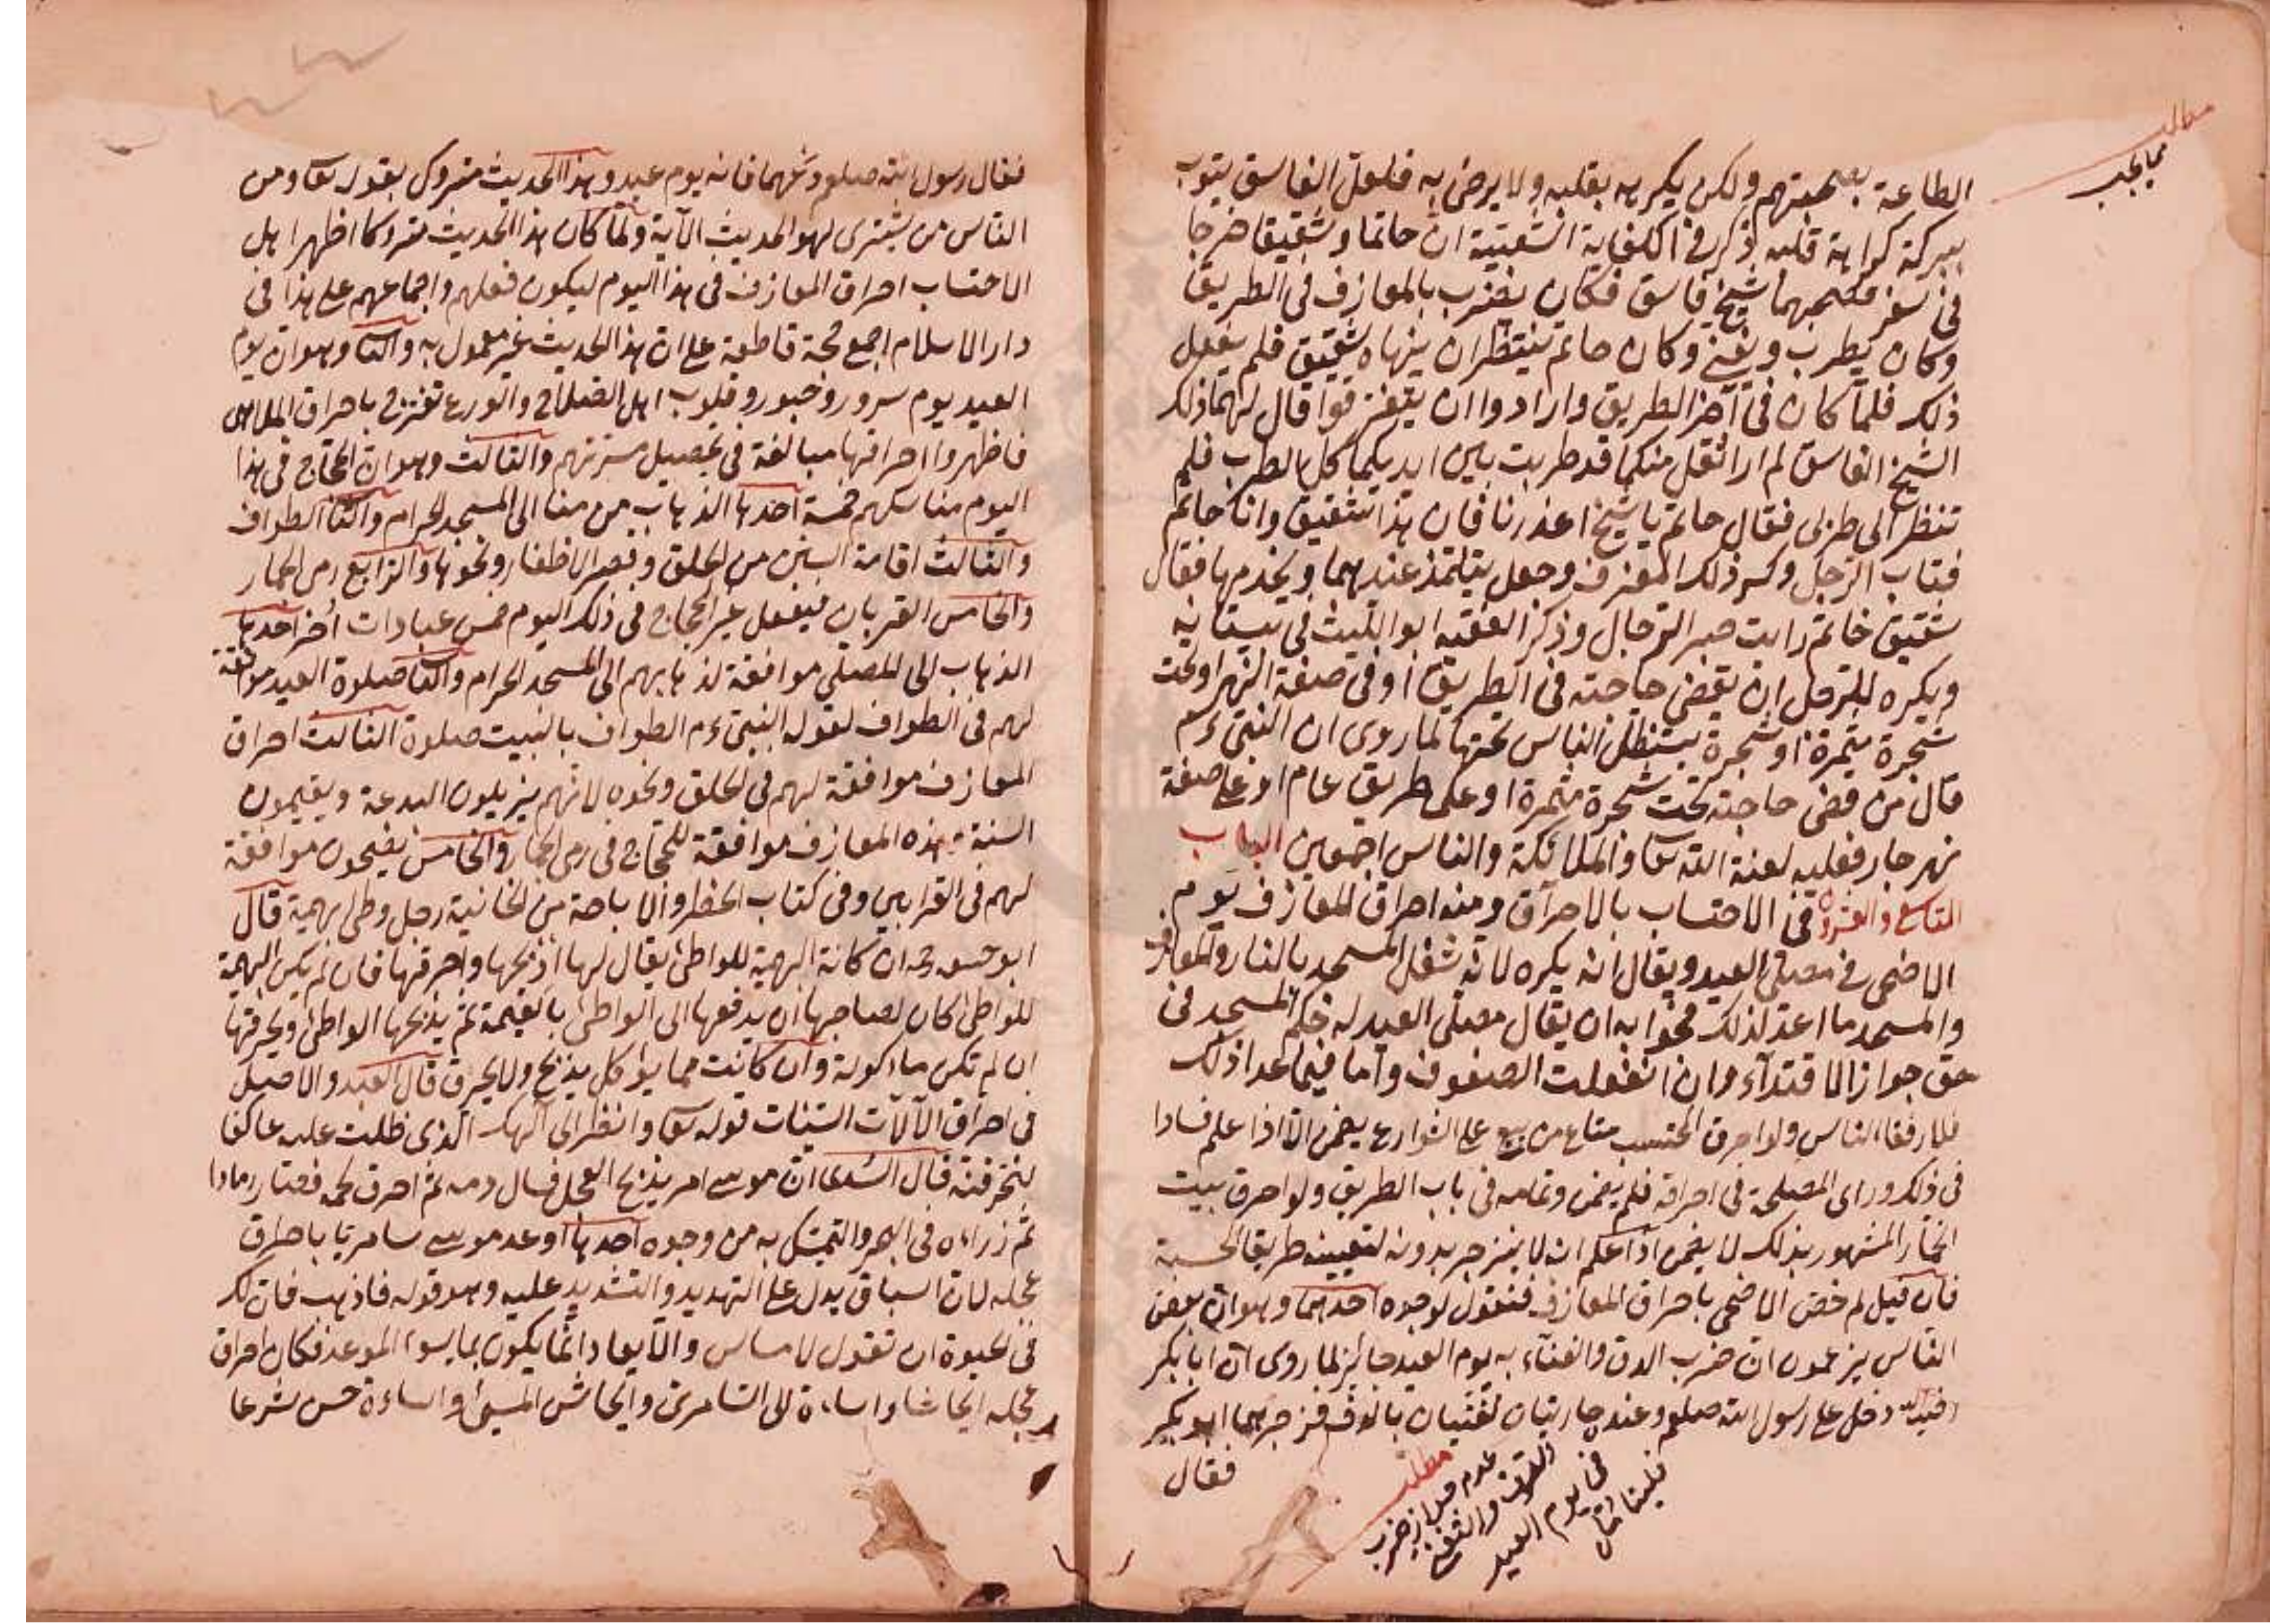 مطلب
مما يجب
الطاعة بصحبتهم ولكن يكره بقلبه ولا يرضى به فلعل الفاسق يتوب
ببركة كراهة قلبه ذكر في الكفاية الشعبية ان حاتما وشقيقا خرجا
في سفر فصحبهما شيخ فاسق فكان يضرب بالمعازف في الطريق
وكان يطرب ويغني وكان حاتم ينتظر ان ينهاه شقيق فلم يفعل
ذلك فلما كان في آخر الطريق وارادوا ان يتفرقوا قال لهما ذلك
الشيخ الفاسق لم ار اثقل منكما قد طربت بين ايديكما كل الطرب فلم
تنظرا الى طربى فقال حاتم يا شيخ اعذرنا فان هذا شقيق وانا حاتم
فتاب الرجل وكسر ذلك المعزف وجعل يتلمذ عندهما ويخدمهما فقال
شقيق لحاتم رايت صبر الرجال وذكر الفقيه ابو الليث في بستانه
ويكره للرجل ان يقضى حاجته في الطريق او في ضفة النهر او تحت
شجرة مثمرة او شجرة يستظل الناس تحتها لما روى ان النبي ءم
قال من قضى حاجته تحت شجرة مثمرة او على طريق عام او على ضفة
نهر جار فعليه لعنة الله تعا والملائكة والناس اجمعين الباب
التاسع والعشرون في الاحتساب بالاحراق ومنه احراق المعازف يوم
الاضحى في مصلى العيد ويقال انه يكره لانه شغل المسجد بالنار والمعازف
والمسجد ما اعد لذلك فجوابه ان يقال مصلى العيد له حكم المسجد في
حق جواز الاقتداء وان انفصلت الصفوف واما فيما عدا ذلك
فلا رفقا للناس ولو احرق المحتسب متاع من يبيع على الشوارع يضمن الا اذا علم فسادا
في ذلك وراى المصلحة في احراقه فلم يضمن وتمامه في باب الطريق ولو احرق بيت
الخمار المشهور بذلك لا يضمن اذا علم انه لا ينزجر بدونه لتعيينه طريقا لحسبة
فان قيل لم خص الاضحى باحراق المعازف فنقول لوجوه احدهما وهو ان بعض
الناس يزعمون ان ضرب الدف والغناء به يوم العيد جائز لما روى ان ابا بكر
رضي الله دخل على رسول الله صلعم وعنده جاريتان تغنيان بالدف فزجرهما ابو بكر
فقال
مطلب
عدم جواز ضرب
الدف والتغني
في يوم العيد
فليتأمل
فقال رسول الله صلعم دعهما فانه يوم عيد وهذا الحديث متروك بقوله تعا ومن
الناس من يشترى لهو الحديث الآية ولما كان هذا الحديث متروكا اظهر اهل
الاحتساب احراق المعازف في هذا اليوم ليكون فعلهم واجماعهم على هذا في
دار الاسلام اجمع حجة قاطعة على ان هذا الحديث غير معمول به والثانى وهو ان يوم
العيد يوم سرور وحبور وقلوب اهل الصلاح والورع تفرح باحراق الملاهى
فاظهروا احراقها مبالغة في تحصيل مسرتهم والثالث وهو ان الحجاج في هذا
اليوم مناسكهم خمسة احدها الذهاب من منا الى المسجد الحرام والثانى الطواف
والثالث اقامة السنن من الحلق وقص الاظفار ونحوها والرابع رمى الجمار
والخامس القربان فيفعل غير الحجاج في ذلك اليوم خمس عبادات أخر احدها
الذهاب الى المصلى موافقة لذهابهم الى المسجد الحرام والثانى صلوة العيد موافقة
لهم في الطواف لقوله النبي ءم الطواف بالبيت صلوة الثالث احراق
المعازف موافقة لهم في الحلق ونحوه لانهم يزيلون البدعة ويقيمون
السنة بهذه المعازف موافقة للحجاج في رمى الجمار والخامس يضحون موافقة
لهم في القرابين وفي كتاب الحظر والاباحة من الخانية رجل وطئ بهيمة قال
ابو حنيفة رحه ان كانة البهيمة للواطئ يقال لها اذبحها واحرقها فان لم يكن البهيمة
للواطئ كان لصاحبها ان يدفعها الى الواطئ بالقيمة ثم يذبحها الواطئ ويحرقها
ان لم تكن ماءكولة وان كانت مما يؤكل يذبح ولا يحرق قال العبد والاصل
في احراق الآلات السيئات قوله تعا وانظر الى آلهك الذى ظلت عليه عاكفا
لنحرقنه قال السدى ان موسى امر بذبح العجل فسال دمه ثم احرق لحمه فصار رمادا
ثم زراءه في البحر والتمسك به من وجوه احدها اوعد موسى سامريا باحراق
عجله لان السباق يدل على التهديد والتشديد عليه وهو قوله فاذهب فان لك
في الحيوة ان تقول لا مساس والايعاد انما يكون بما يسوء الموعد فكان احراق
عجله ايحاشا واساءة الى السامرى وايحاش المسئ واساءة حسن شرعا